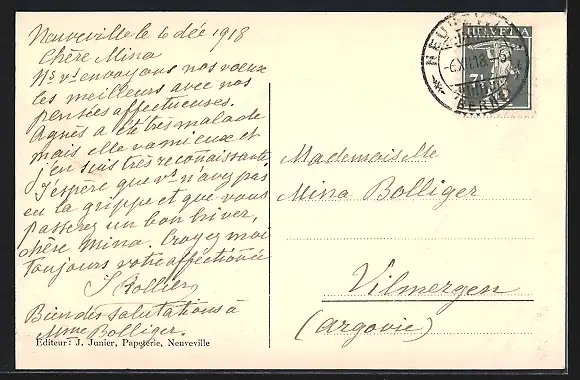 Neuveville le 6 déc 1918
Chère Mina
Ns vs envoyons nos vœux
les meilleurs avec nos
pensées affectueuses.
Agnès a été très malade
mais elle va mieux et
j'en suis très reconaissante.
J'espère que vs n'avez pas
eu la grippe et que vous
passerez un bon hiver,
chère Mina. Croyez moi
toujours votre affectionée
S Rollier
Bien des salutations à
Mme Bolliger.
Editeur: J. Junier, Papeterie, Neuveville
HELVETIA
7½
NEUVEVILLE
-6.XII.18.-5
(BERN)
Mademoiselle
Mina Bolliger
Vilmergen
(Argovie)